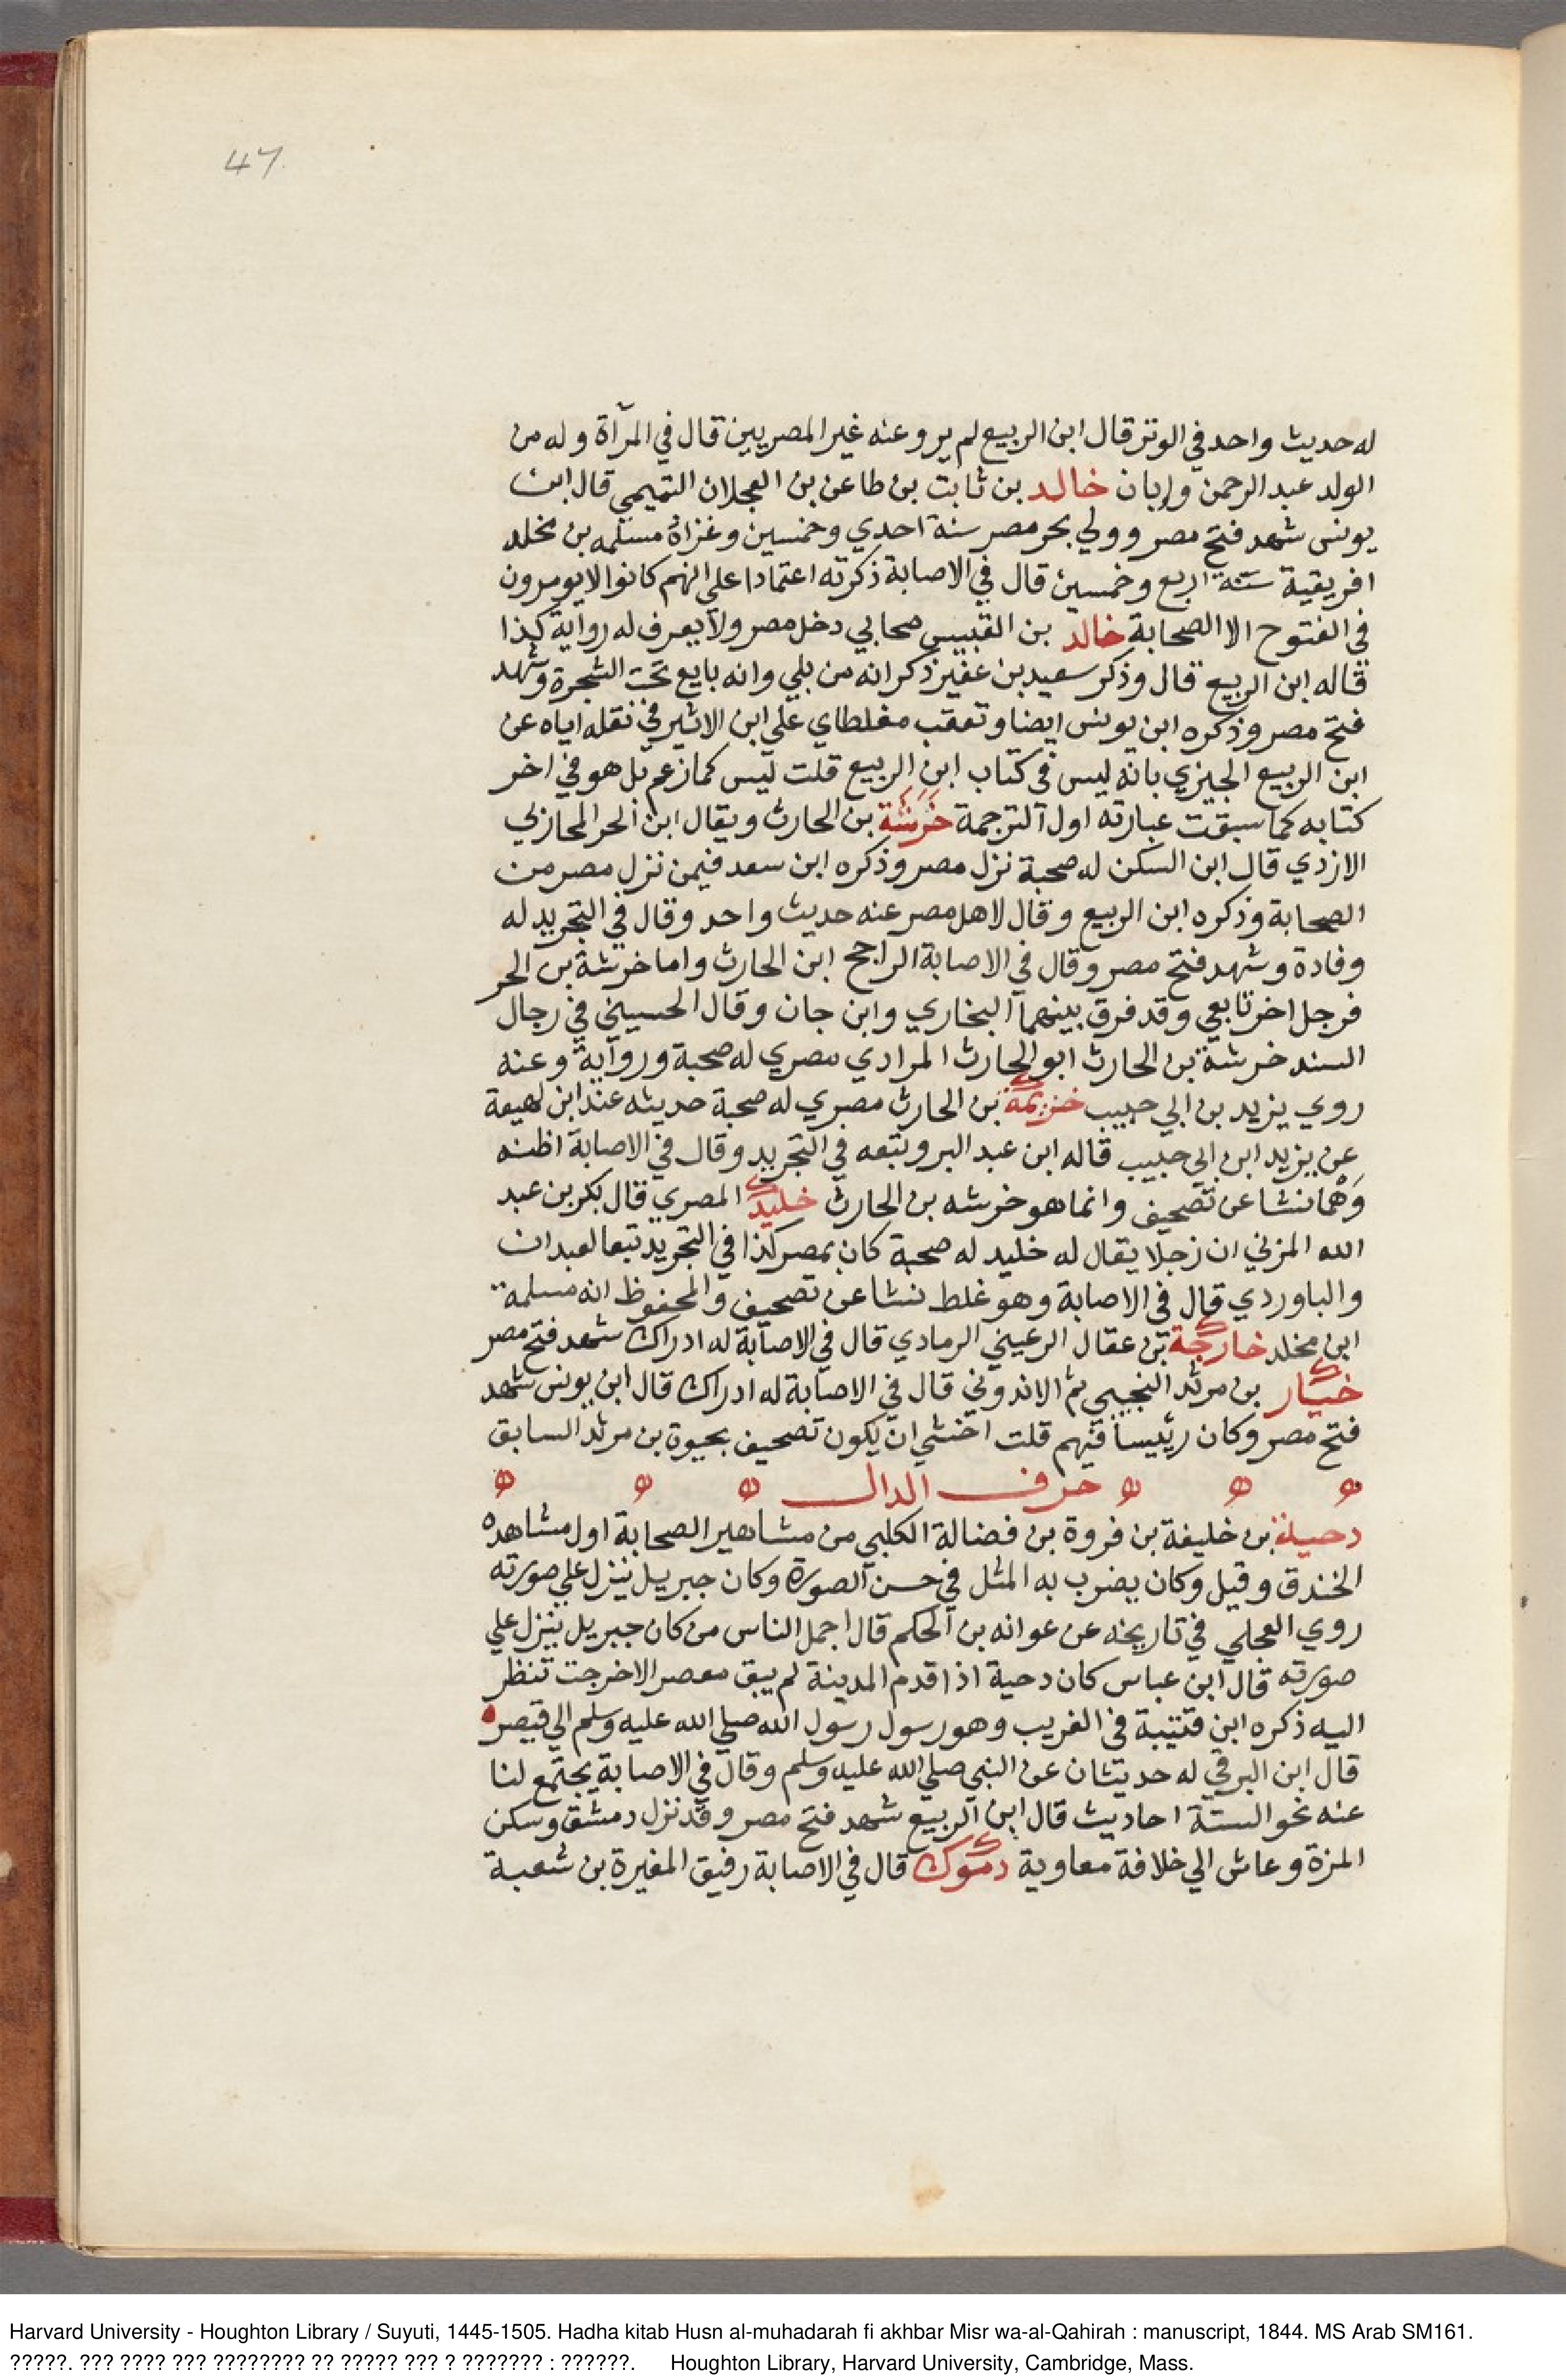 47
له حديث واحد في الوتر قال ابن الربيع لم يرو عنه غير المصريين قال في المرآة وله من
الولد عبد الرحمن وإبان خالد بن ثابت بن طاعن بن العجلان التميمي قال ابن
يونس شهد فتح مصر وولي بحر مصر سنة احدي وخمسين وغزاة مسلمه بن مخلد
افريقية سنة اربع وخمسين قال في الاصابة ذكرته اعتمادا علي انهم كانوا لا يومرون
في الفتوح الا الصحابة خالد بن القبيس صحابي دخل مصر ولا يعرف له رواية كذا
قاله ابن الربيع قال وذكر سعيد بن عفير ذكر انه من بلي وانه بايع تحت الشجرة وشهد
فتح مصر وذكره ابن يونس ايضا وتعقب مغلطاي علي ابن الاثير في نقله اياه عن
ابن الربيع الجيزي بانه ليس في كتاب ابن الربيع قلت ليس كما زعم بل هو في اخر
كتابه كما سبقت عبارته اول الترجمة خَرَشَة بن الحارث ويقال ابن الحر المحازبي
الازدي قال ابن السكن له صحبة نزل مصر وذكره ابن سعد فيمن نزل مصر من
الصحابة وذكره ابن الربيع وقال لاهل مصر عنه حديث واحد وقال في التجريد له
وفادة وشهد فتح مصر وقال في الاصابة الراجح ابن الحارث واما خرشة بن الحر
فرجل اخر تابعي وقد فرق بينهما البخاري وابن جان وقال الحسيني في رجال
السند خرشة بن الحارث ابو الحارث المرادي مصري له صحبة ورواية وعنه
روي يزيد بن ابي حبيب خزيمة بن الحارث مصري له صحبة حديثه عند ابن لهيعة
عن يزيد ابن ابي حبيب قاله ابن عبد البر وتبعه في التجريد وقال في الاصابة اظنه
وَهْما نشا عن تصحيف وانما هو خرشه بن الحارث خليد المصري قال بكر بن عبد
الله المزني ان رجلا يقال له خليد له صحبة كان بمصر كذا في التجريد تبعا لعبدان
والباوردي قال في الاصابة وهو غلط نشا عن تصحيف والمحفوظ انه مسلمة
ابن مخلد خارجة بن عقال الرعيني الرمادي قال في الاصابة له ادراك شهد فتح مصر
خيار بن مرثد التجيبي ثم الاندوني قال في الاصابة له ادراك قال ابن يونس شهد
فتح مصر وكان رئيسا فيهم قلت اخشي ان يكون تصحيف بحيوة بن مرثد السابق
حرف الدال
دحية بن خليفة بن فروة بن فضالة الكلبي من مشاهير الصحابة اول مشاهده
الخندق وقيل وكان يضرب به المثل في حسن الصورة وكان جبريل ينزل علي صورته
روي العجلي في تاريخه عن عوانه بن الحكم قال اجمل الناس من كان جبريل ينزل علي
صورته قال ابن عباس كان دحية اذا قدم المدينة لم يبق معصر الا خرجت تنظر
اليه ذكره ابن قتيبة في الغريب وهو رسول رسول الله صلي الله عليه وسلم الي قيصر
قال ابن البرقي له حديثان عن النبي صلي الله عليه وسلم وقال في الاصابة يجتمع لنا
عنه نحو الستة احاديث قال ابن الربيع شهد فتح مصر وقد نزل دمشق وسكن
المزة وعاش الي خلافة معاوية دموك قال في الاصابة رفيق المغيرة بن شعبة
Harvard University - Houghton Library / Suyuti, 1445-1505. Hadha kitab Husn al-muhadarah fi akhbar Misr wa-al-Qahirah : manuscript, 1844. MS Arab SM161.
?????. ??? ???? ??? ???????? ?? ????? ??? ? ??????? : ??????. Houghton Library, Harvard University, Cambridge, Mass.